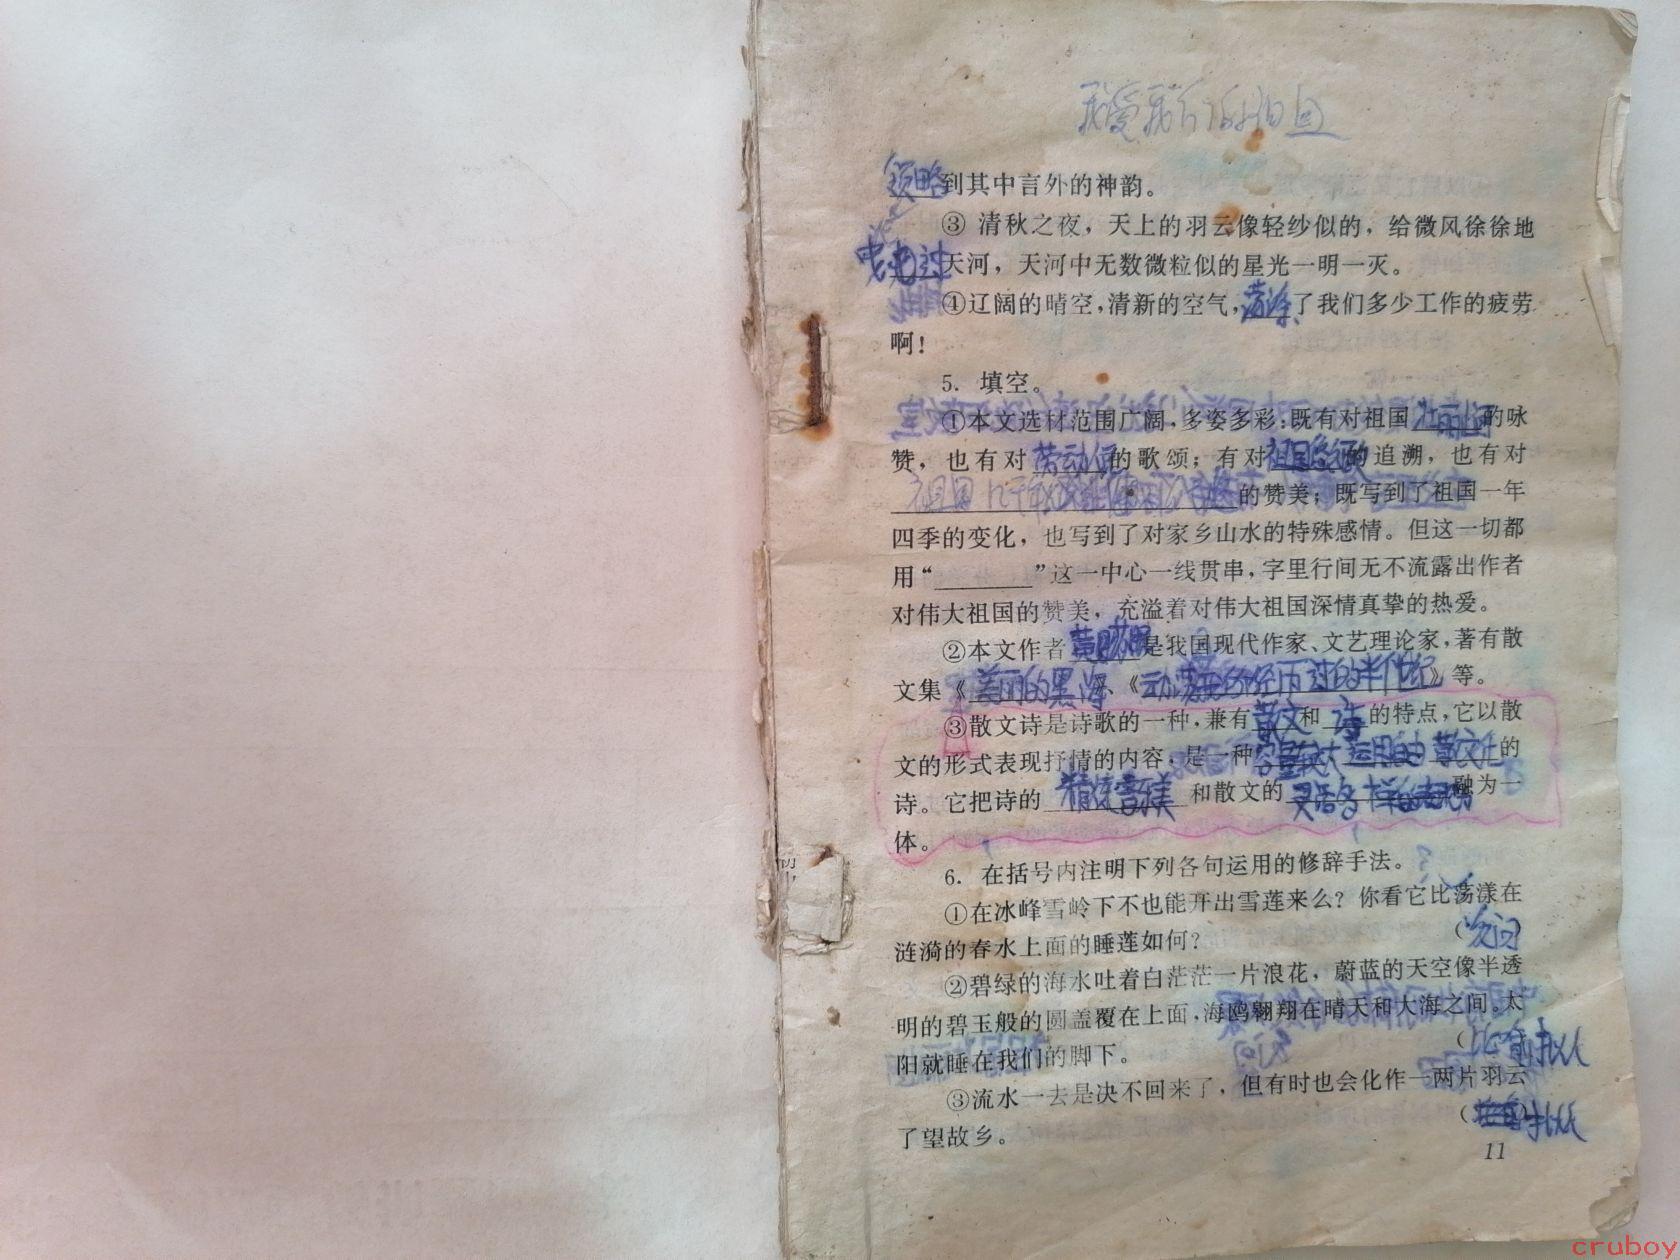 我爱我们的祖国
领略到其中言外的神韵。
③ 清秋之夜，天上的羽云像轻纱似的，给微风徐徐地
天河，天河中无数微粒似的星光一明一灭。
④辽阔的晴空，清新的空气，荡涤了我们多少工作的疲劳
啊！
5. 填空。
①本文选材范围广阔，多姿多彩；既有对祖国的咏
赞，也有对劳动人民的歌颂；有对的追溯，也有对
的赞美；既写到了祖国一年
四季的变化，也写到了对家乡山水的特殊感情。但这一切都
用“______”这一中心一线贯串，字里行间无不流露出作者
对伟大祖国的赞美，充溢着对伟大祖国深情真挚的热爱。
②本文作者黄是我国现代作家、文艺理论家，著有散
文集《美丽的黑海》、《动荡：我所经历的半个世纪》等。
③散文诗是诗歌的一种，兼有散文和诗的特点，它以散
文的形式表现抒情的内容，是一种容量较大 运用自由 散文化的
诗。它把诗的精炼音乐美和散文的灵活多样的融为一
体。
6. 在括号内注明下列各句运用的修辞手法。
①在冰峰雪岭下不也能开出雪莲来么？你看它比荡漾在
涟漪的春水上面的睡莲如何？
②碧绿的海水吐着白茫茫一片浪花，蔚蓝的天空像半透
明的碧玉般的圆盖覆在上面，海鸥翱翔在晴天和大海之间。太
阳就睡在我们的脚下。（比喻拟人
③流水一去是决不回来了，但有时也会化作一两片羽云
了望故乡。（拟人
11
cruboy